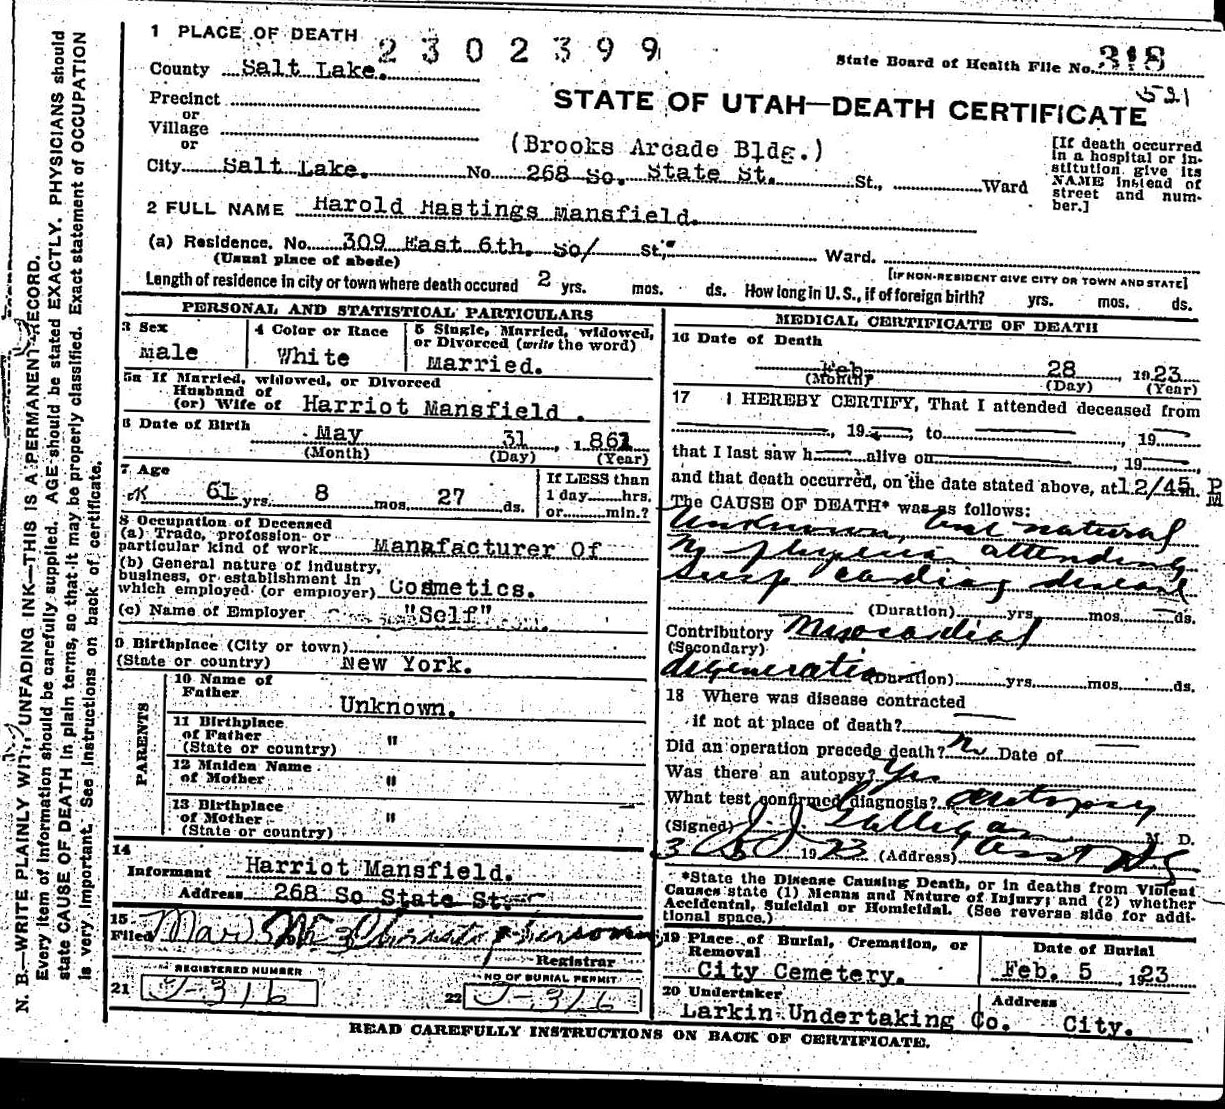 1 PLACE OF DEATH
2302399
County Salt Lake.
State Board of Health File No. 318
521
Precinct
or
Village
or
STATE OF UTAH—DEATH CERTIFICATE
(Brooks Arcade Bldg.)
City Salt Lake. No. 268 So. State St. St., Ward
[If death occurred
in a hospital or in-
stitution give its
NAME instead of
street and num-
ber.]
2 FULL NAME Harold Hastings Mansfield.
(a) Residence. No. 309 East 6th. So/ St., Ward.
(Usual place of abode)
[IF NON-RESIDENT GIVE CITY OR TOWN AND STATE]
Length of residence in city or town where death occured 2 yrs. mos. ds. How long in U. S., if of foreign birth? yrs. mos. ds.
PERSONAL AND STATISTICAL PARTICULARS
3 Sex
Male
4 Color or Race
White
5 Single, Married, widowed,
or Divorced (write the word)
Married.
5a If Married, widowed, or Divorced
Husband of
(or) Wife of Harriot Mansfield.
6 Date of Birth May 31, 1861
(Month) (Day) (Year)
7 Age
61 yrs. 8 mos. 27 ds.
If LESS than
1 day hrs.
or min.?
8 Occupation of Deceased
(a) Trade, profession or
particular kind of work Manafacturer Of
(b) General nature of industry,
business, or establishment in
which employed (or employer) Cosmetics.
(c) Name of Employer "Self"
9 Birthplace (City or town)
(State or country) New York.
PARENTS
10 Name of
Father Unknown.
11 Birthplace
of Father "
(State or country)
12 Maiden Name
of Mother "
13 Birthplace
of Mother "
(State or country)
14
Informant Harriot Mansfield.
Address 268 So State St.
15
Filed Mar
Registrar
REGISTERED NUMBER
21 J-316
NO OF BURIAL PERMIT
22 J-316
MEDICAL CERTIFICATE OF DEATH
16 Date of Death
Feb. 28, 1923
(Month) (Day) (Year)
17 I HEREBY CERTIFY, That I attended deceased from
, 19 , to , 19
that I last saw h alive on , 19
and that death occurred, on the date stated above, at 12/45 m. PM
The CAUSE OF DEATH* was as follows:
Unknown, but natural
No physician attending
Susp cardiac disease
(Duration) yrs. mos. ds.
Contributory Myocardial
(Secondary)
degeneration (Duration) yrs. mos. ds.
18 Where was disease contracted
if not at place of death?
Did an operation precede death? No Date of
Was there an autopsy? Yes
What test confirmed diagnosis? autopsy
(Signed) J J Galligan M. D.
3/5 1923 (Address)
*State the Disease Causing Death, or in deaths from Violent
Causes state (1) Means and Nature of Injury; and (2) whether
Accidental, Suicidal or Homicidal. (See reverse side for addi-
tional space.)
19 Place of Burial, Cremation, or
Removal
City Cemetery.
Date of Burial
Feb. 5, 1923
20 Undertaker
Larkin Undertaking Co.
Address
City.
READ CAREFULLY INSTRUCTIONS ON BACK OF CERTIFICATE.
N. B.—WRITE PLAINLY WITH UNFADING INK—THIS IS A PERMANENT RECORD.
Every item of information should be carefully supplied. AGE should be stated EXACTLY. PHYSICIANS should
state CAUSE OF DEATH in plain terms, so that it may be properly classified. Exact statement of OCCUPATION
is very important. See instructions on back of certificate.